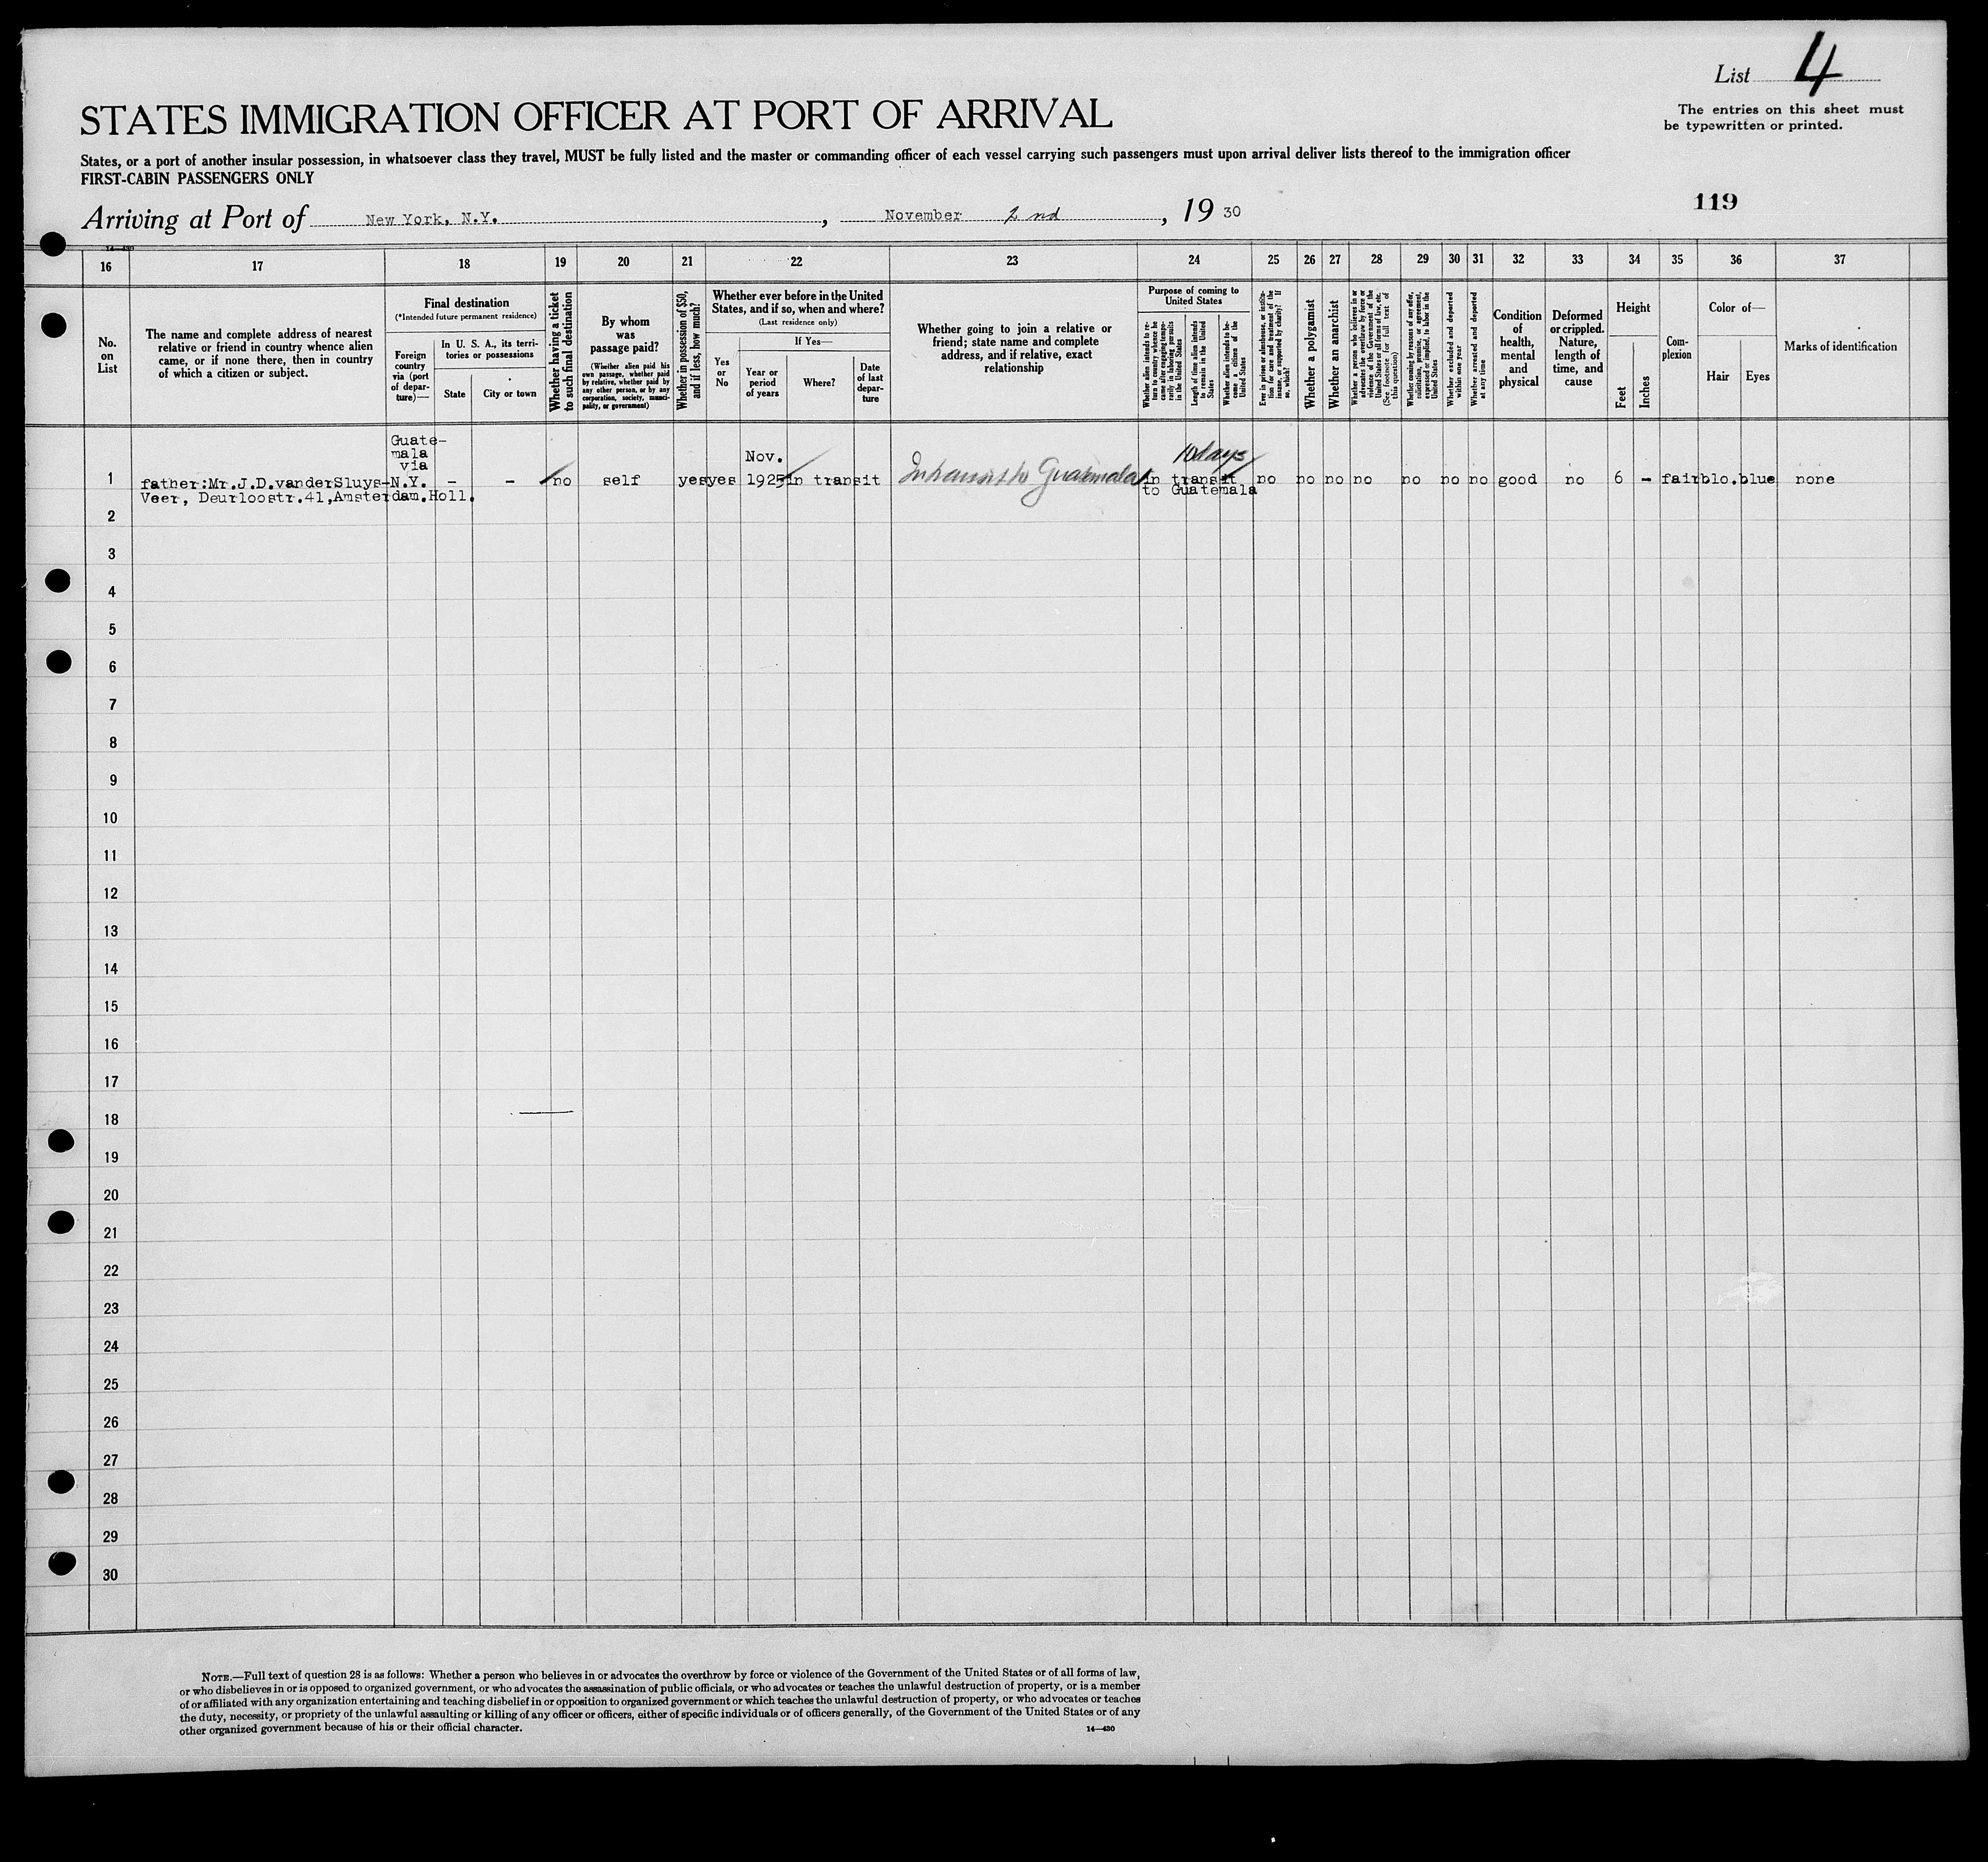 List 4
STATES IMMIGRATION OFFICER AT PORT OF ARRIVAL
The entries on this sheet must
be typewritten or printed.
States, or a port of another insular possession, in whatsoever class they travel, MUST be fully listed and the master or commanding officer of each vessel carrying such passengers must upon arrival deliver lists thereof to the immigration officer
FIRST-CABIN PASSENGERS ONLY
119
Arriving at Port of New York, N.Y. , November 2nd , 19 30
14—430
16 17 18 19 20 21 22 23 24 25 26 27 28 29 30 31 32 33 34 35 36 37
No.
on
List
The name and complete address of nearest
relative or friend in country whence alien
came, or if none there, then in country
of which a citizen or subject.
Final destination
(*Intended future permanent residence)
Foreign
country
via (port
of depar-
ture)—
In U. S. A., its terri-
tories or possessions
State
City or town
Whether having a ticket
to such final destination
By whom
was
passage paid?
(Whether alien paid his
own passage, whether paid
by relative, whether paid by
any other person, or by any
corporation, society, munici-
pality, or government)
Whether in possession of $50,
and if less, how much?
Whether ever before in the United
States, and if so, when and where?
(Last residence only)
Yes
or
No
If Yes—
Year or
period
of years
Where?
Date
of last
depar-
ture
Whether going to join a relative or
friend; state name and complete
address, and if relative, exact
relationship
Purpose of coming to
United States
Whether alien intends to re-
turn to country whence he
came after engaging tempo-
rarily in laboring pursuits
in the United States
Length of time alien intends
to remain in the United
States
Whether alien intends to be-
come a citizen of the
United States
Ever in prison or almshouse, or institu-
tion for care and treatment of the
insane, or supported by charity? If
so, which?
Whether a polygamist
Whether an anarchist
Whether a person who believes in or
advocates the overthrow by force or
violence of the Government of the
United States or all forms of law, etc.
(See footnote for full text of
this question)
Whether coming by reasons of any offer,
solicitation, promise, or agreement,
expressed or implied, to labor in the
United States
Whether excluded and deported
within one year
Whether arrested and deported
at any time
Condition
of
health,
mental
and
physical
Deformed
or crippled.
Nature,
length of
time, and
cause
Height
Feet
Inches
Com-
plexion
Color of—
Hair
Eyes
Marks of identification
Guate-
mala
via
Nov.
10 days
1 father:Mr.J.D.vanderSluys-N.Y. - - no self yes yes 1925 in transit In transit to Guatemala in transit no no no no no no no good no 6 - fair blo. blue none
Veer, Deurloostr.41,Amsterdam.Holl. to Guatemala
2
3
4
5
6
7
8
9
10
11
12
13
14
15
16
17
18
19
20
21
22
23
24
25
26
27
28
29
30
NOTE.—Full text of question 28 is as follows: Whether a person who believes in or advocates the overthrow by force or violence of the Government of the United States or of all forms of law,
or who disbelieves in or is opposed to organized government, or who advocates the assassination of public officials, or who advocates or teaches the unlawful destruction of property, or is a member
of or affiliated with any organization entertaining and teaching disbelief in or opposition to organized government or which teaches the unlawful destruction of property, or who advocates or teaches
the duty, necessity, or propriety of the unlawful assaulting or killing of any officer or officers, either of specific individuals or of officers generally, of the Government of the United States or of any
other organized government because of his or their official character.
14—430